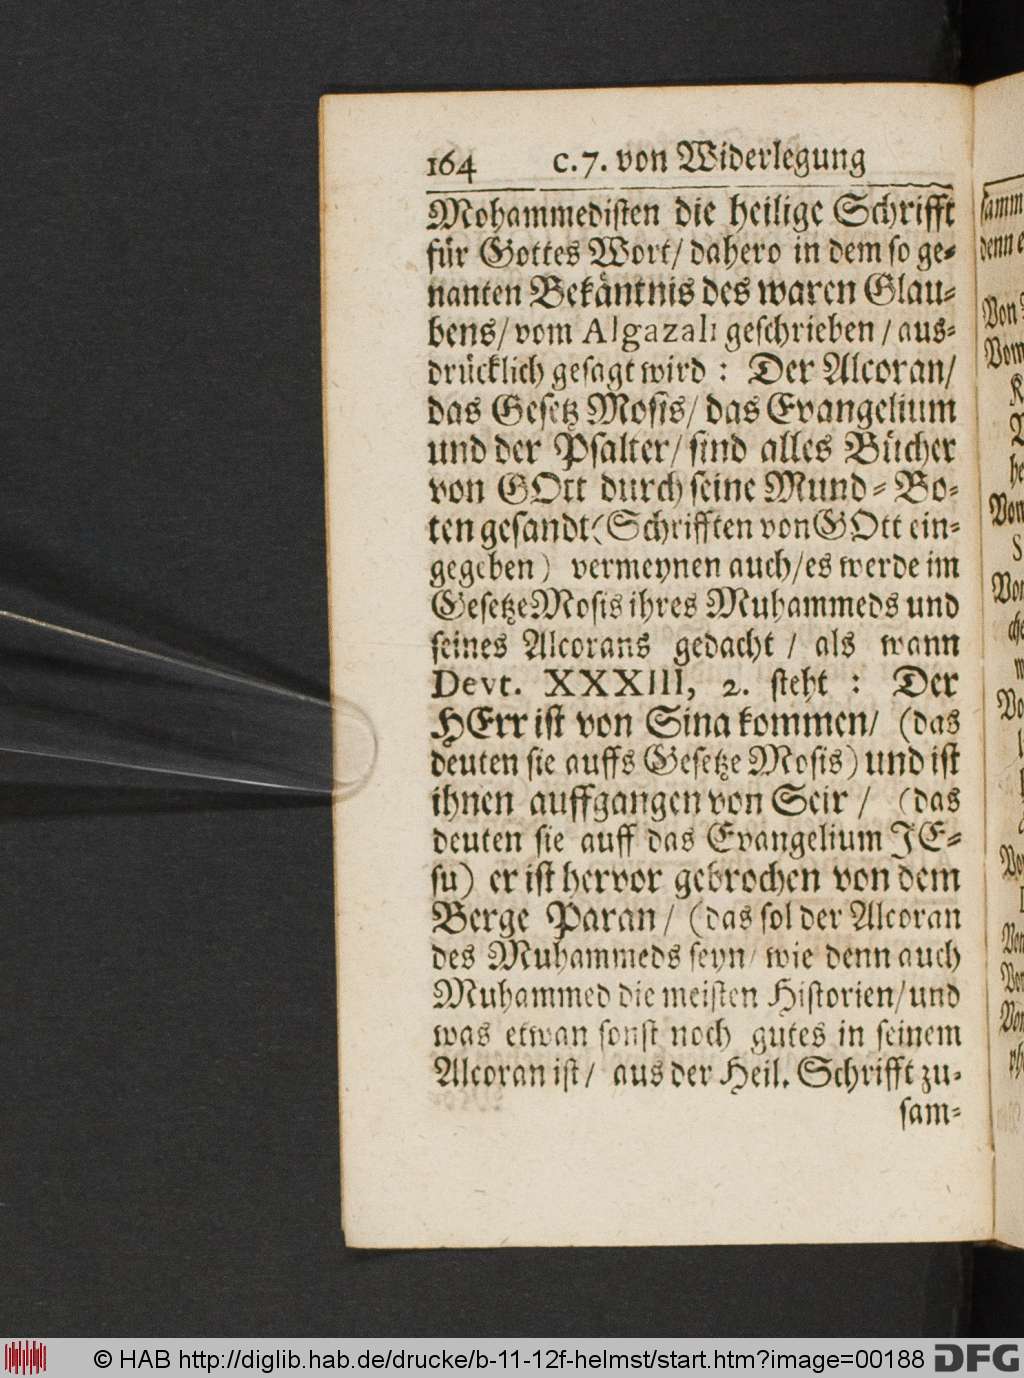 164 c. 7. von Widerlegung
Mohammedisten die heilige Schrifft
für Gottes Wort/ dahero in dem so ge-
nanten Bekäntnis des waren Glau-
bens/ vom Algazali geschrieben / aus-
drücklich gesagt wird : Der Alcoran/
das Gesetz Mosis/ das Evangelium
und der Psalter/ sind alles Bücher
von GOtt durch seine Mund-Bo-
ten gesandt (Schrifften von GOtt ein-
gegeben) vermeynen auch/ es werde im
Gesetze Mosis ihres Muhammeds und
seines Alcorans gedacht / als wann
Devt. XXXIII, 2. steht : Der
HErr ist von Sina kommen/ (das
deuten sie auffs Gesetze Mosis) und ist
ihnen auffgangen von Seir / (das
deuten sie auff das Evangelium JE-
su) er ist hervor gebrochen von dem
Berge Paran/ (das sol der Alcoran
des Muhammeds seyn/ wie denn auch
Muhammed die meisten Historien/ und
was etwan sonst noch gutes in seinem
Alcoran ist/ aus der Heil. Schrifft zu-
sam-
samm
denn e
Von
Vom
Von
Von
Von
© HAB http://diglib.hab.de/drucke/b-11-12f-helmst/start.htm?image=00188 DFG